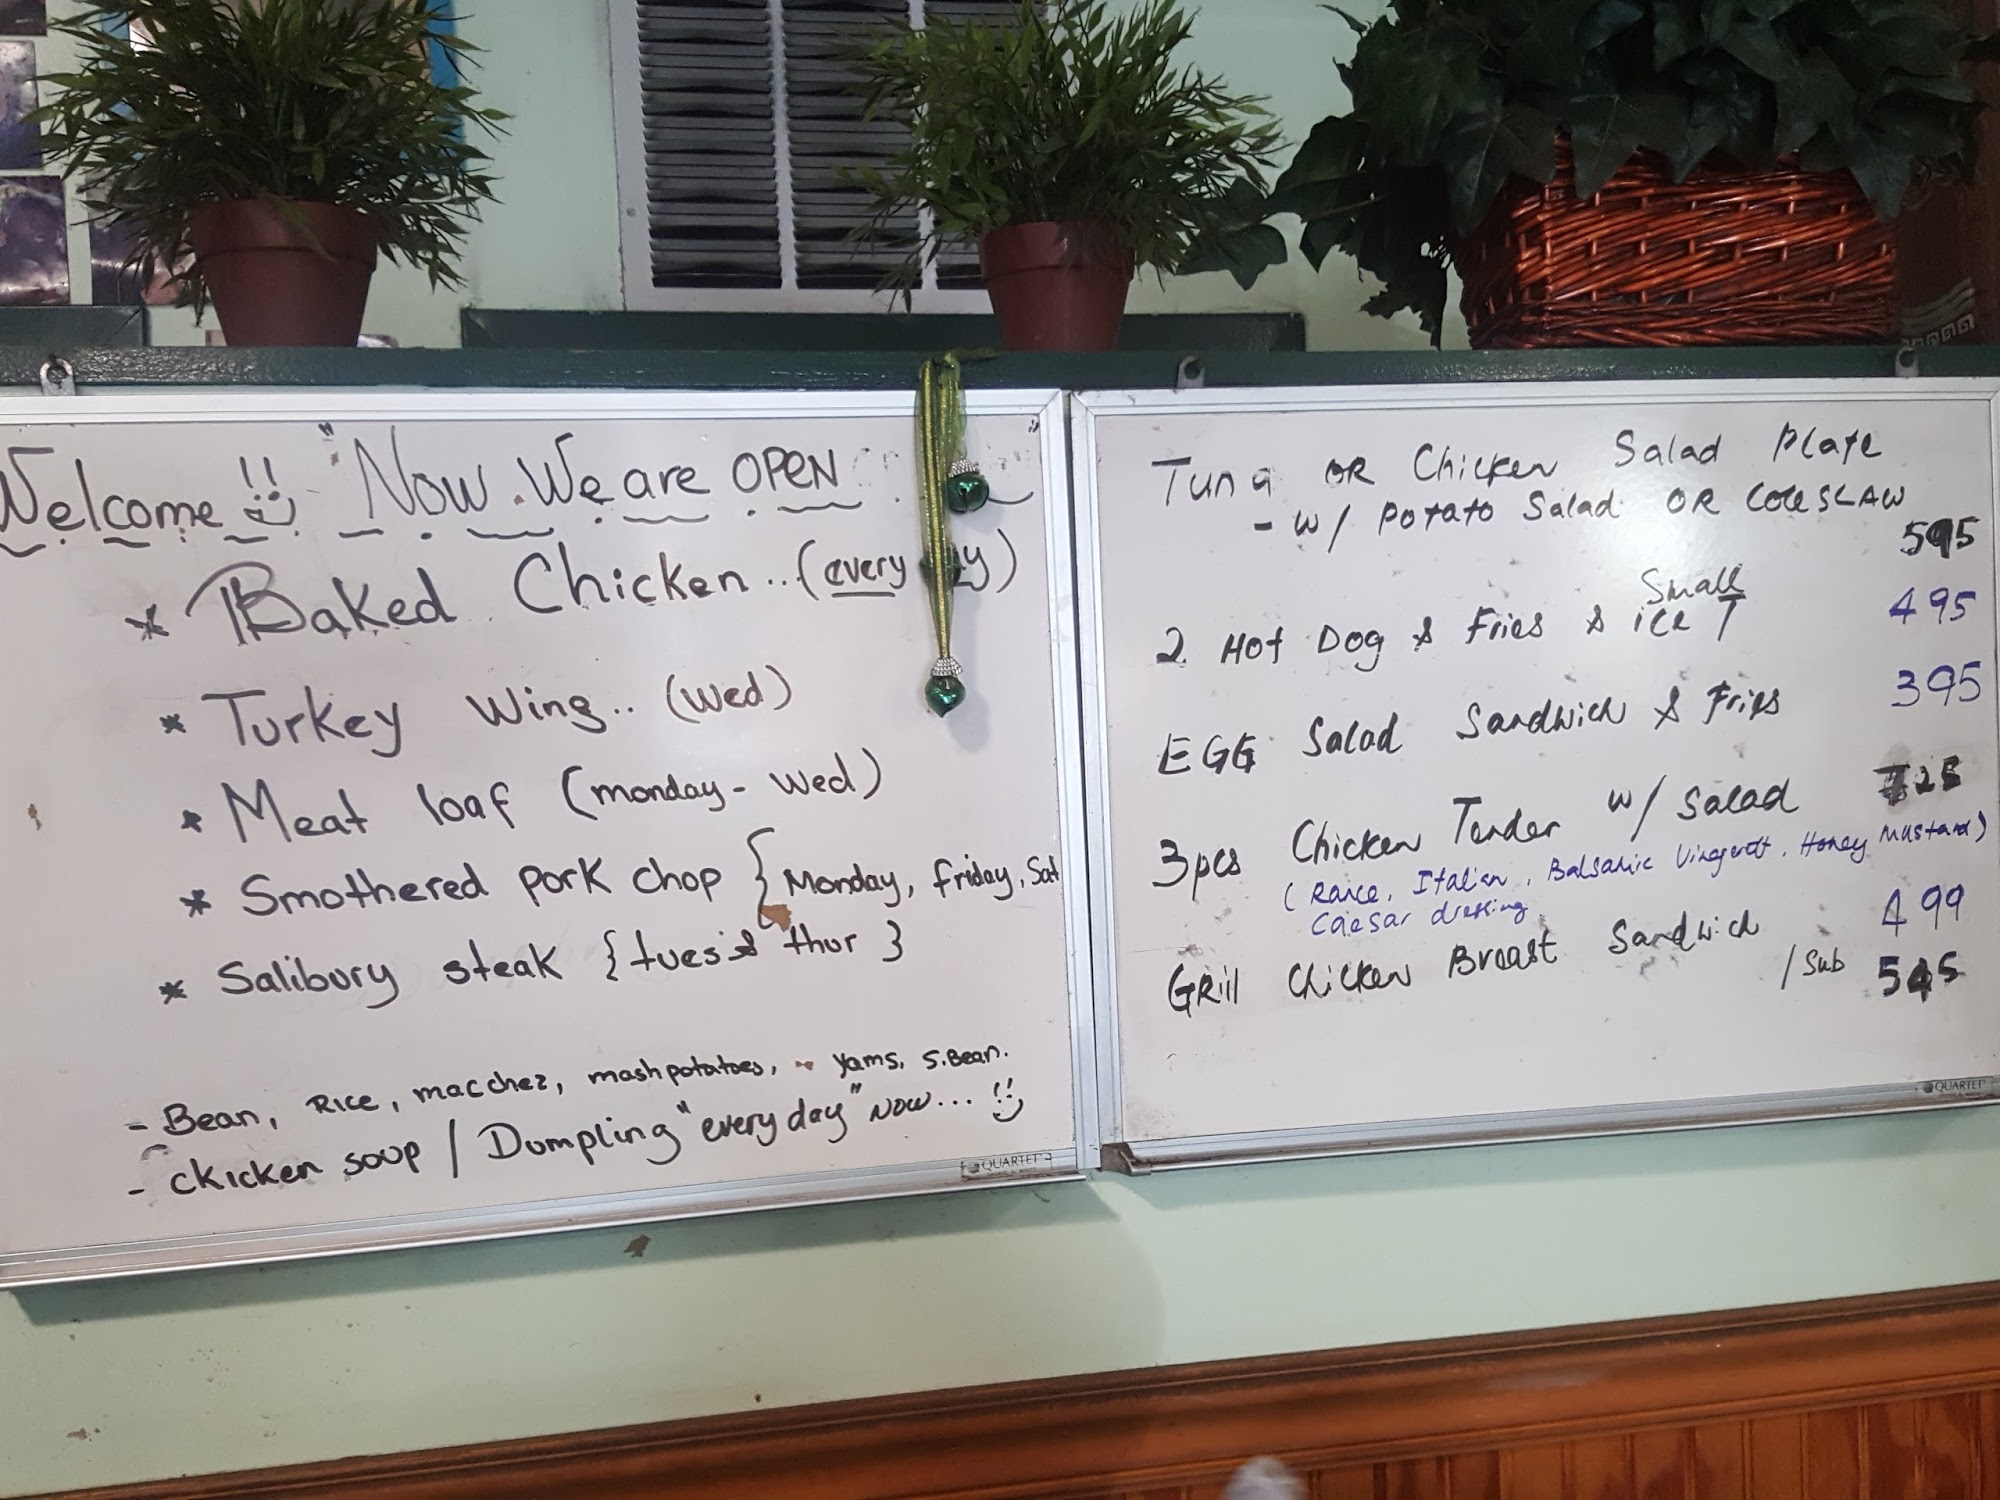 Welcome !! "Now We are OPEN
* Baked Chicken .. (every y)
* Turkey Wing .. (Wed)
* Meat loaf (monday - wed)
* Smothered pork chop { Monday, friday, Sat
* Salibury steak { tues & thur }
- Bean, RICE, mac chez, mashpotatoes, yams, S.Bean.
- Chicken soup / Dumpling "every day" NOW...
QUARTET
Tuna OR Chicken Salad Plate
- w/ Potato Salad OR COLESLAW
595
Small
2 Hot Dog & Fries & ice T 495
EGG Salad Sandwich & Fries 395
3pcs Chicken Tender w/ Salad 725
(Rance, Italian, Balsamic Vinegrett, Honey Mustard)
Caesar dressing
Grill Chicken Breast Sandwich 499
/ Sub 545
QUARTET